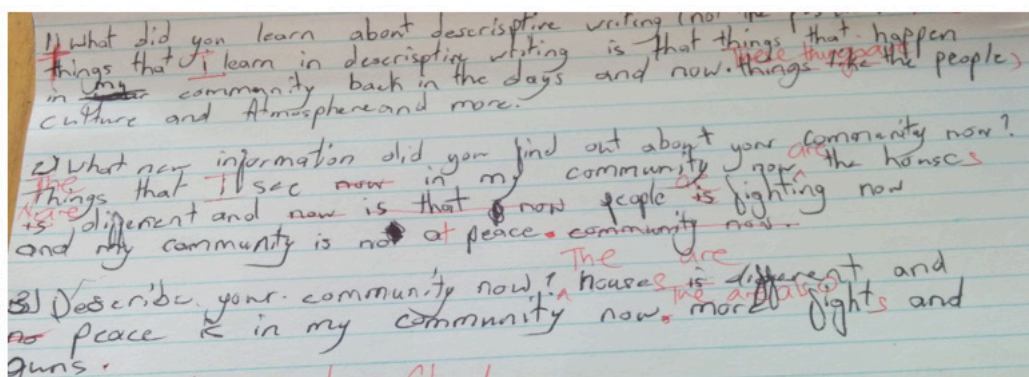 1) What did you learn about descrisptive writing (no
things that I learn in descrisptive writing is that things that happen
These things are
in community back in the days and now. things like the people,
culture and Atmosphere and more.
2) What new information did you find out about your community now?
The are
things that I see now in my community now the houses
are are
is different and now is that now people is fighting now
and my community is not at peace. community now.
The are
3) Describe your community now? houses is different and
The are also
no peace in my community now. more fights and
guns.